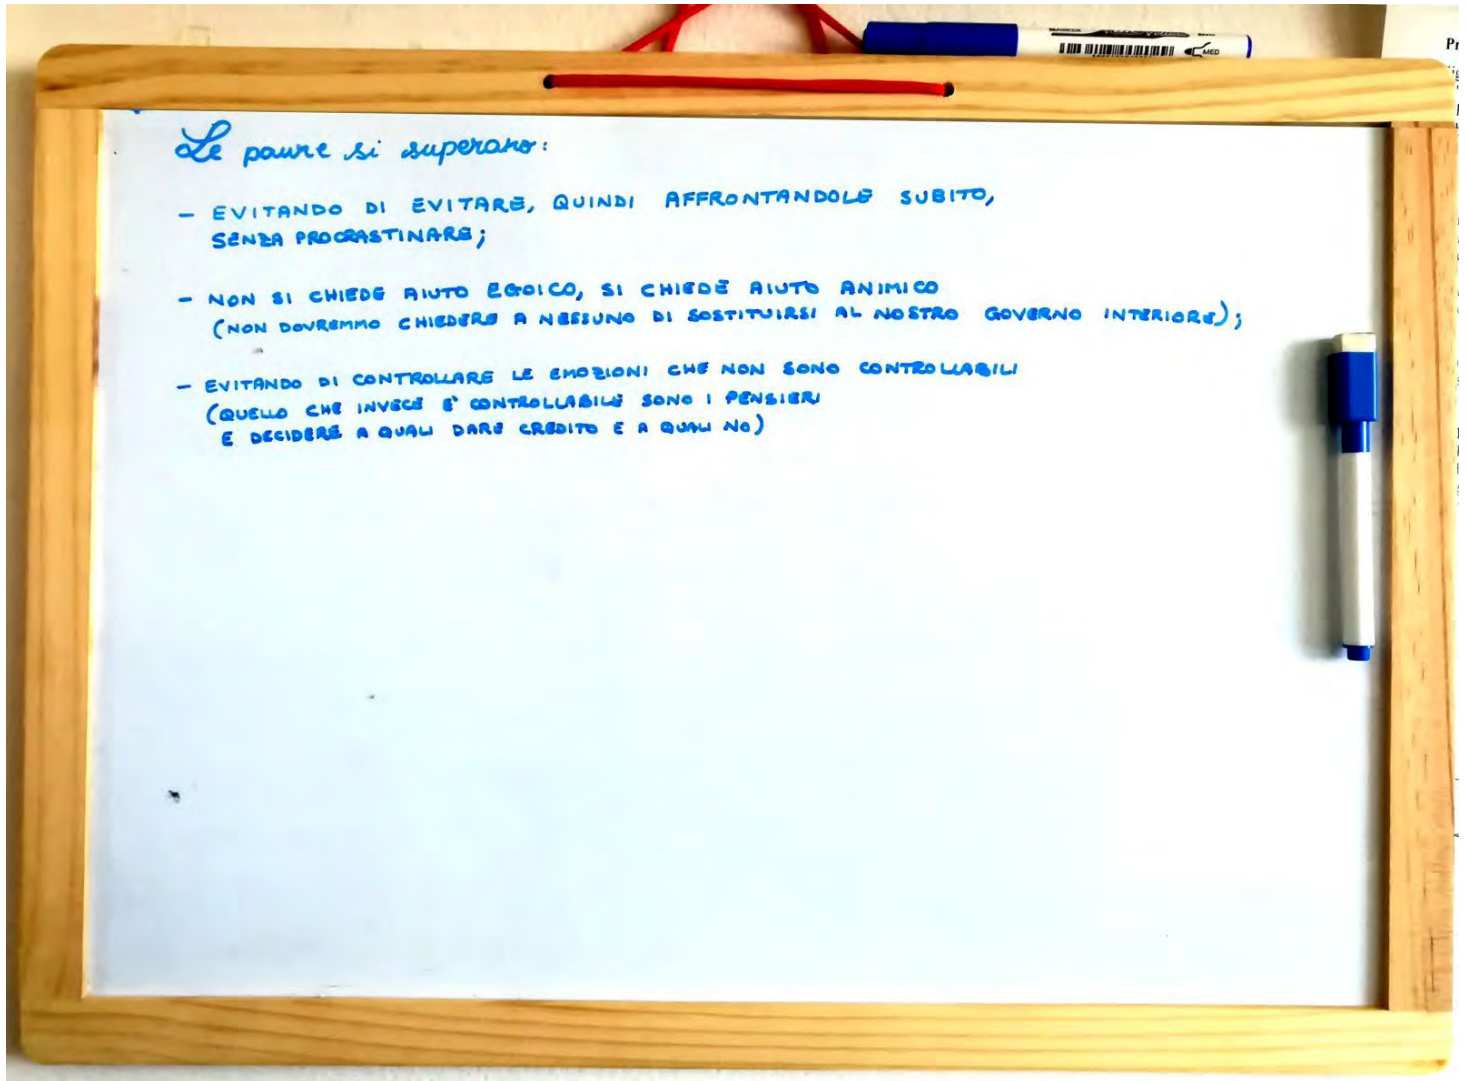 Le paure si superano:
- EVITANDO DI EVITARE, QUINDI AFFRONTANDOLE SUBITO,
SENZA PROCRASTINARE;
- NON SI CHIEDE AIUTO EGOICO, SI CHIEDE AIUTO ANIMICO
(NON DOVREMMO CHIEDERE A NESSUNO DI SOSTITUIRSI AL NOSTRO GOVERNO INTERIORE);
- EVITANDO DI CONTROLLARE LE EMOZIONI CHE NON SONO CONTROLLABILI
(QUELLO CHE INVECE E' CONTROLLABILE SONO I PENSIERI
E DECIDERE A QUALI DARE CREDITO E A QUALI NO)
MED
Pr